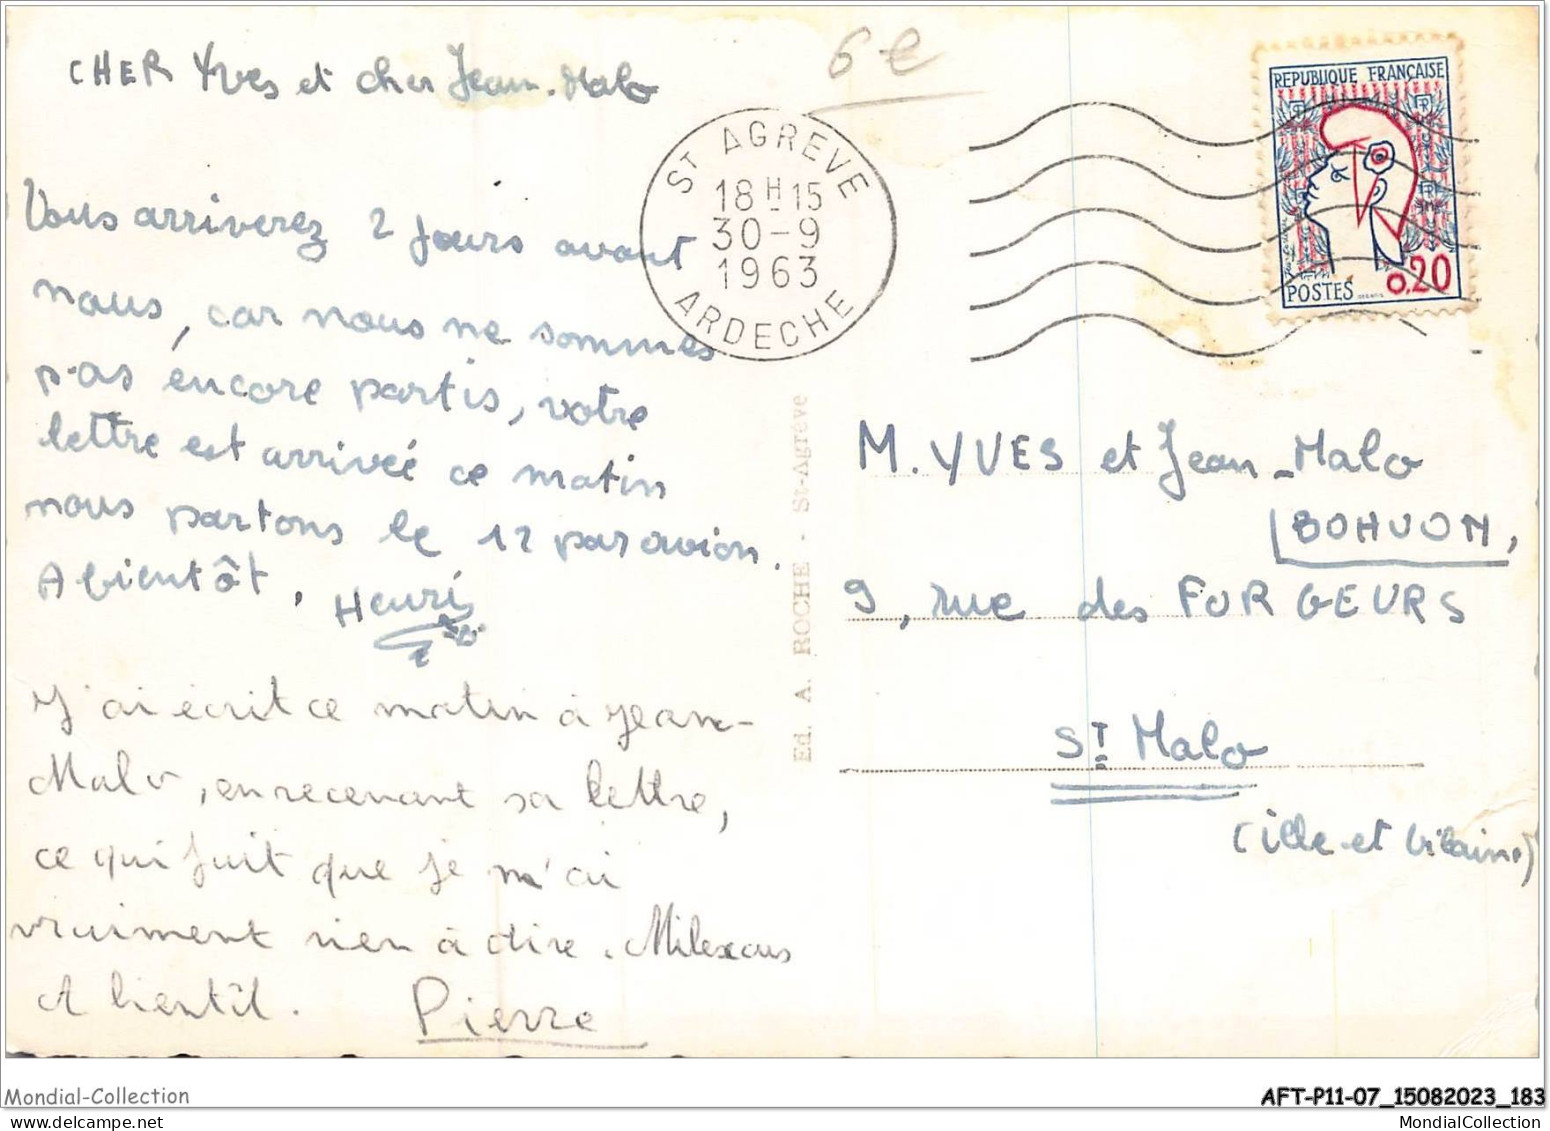 6€
CHER Yves et cher Jean-Malo
Vous arriverez 2 jours avant
nous, car nous ne sommes
pas encore partis, votre
lettre est arrivée ce matin
nous partons le 12 par avion.
A bientôt, Henri
J'ai écrit ce matin à Jean-
Malo, en recevant sa lettre,
ce qui fait que je m'ai
vraiment rien à dire.
A bientôt. Pierre
ST AGREVE
18H15
30-9
1963
ARDECHE
REPUBLIQUE FRANÇAISE
0.20
POSTES
Ed. A. ROCHE - St-Agrève
M. YVES et Jean-Malo
BOHUON,
9, rue des FORGEURS
ST Malo
(ille-et Vilaine)
Mondial-Collection
AFT-P11-07_15082023_183
MondialCollection